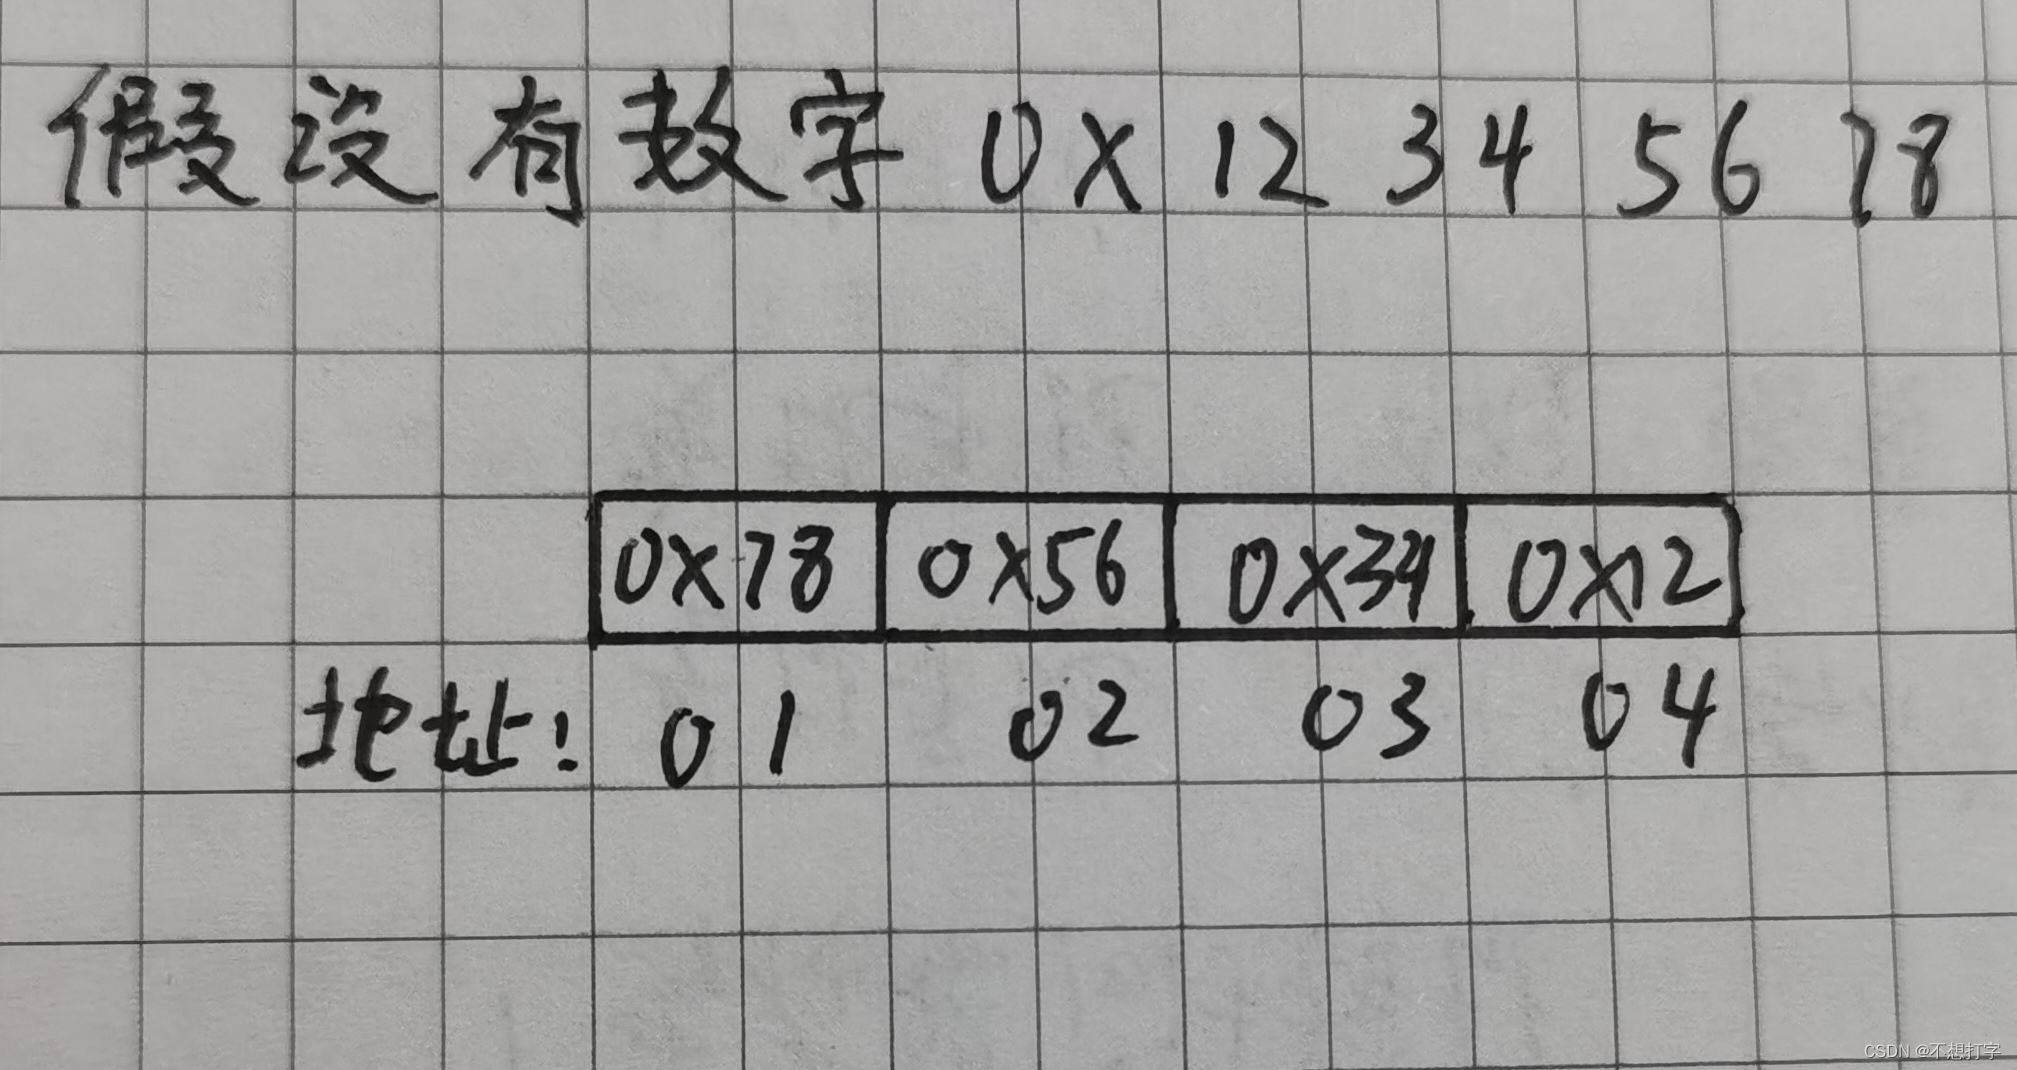 假设有数字 0X 12 34 56 78
0X78 0X56 0X34 0X12
地址: 01 02 03 04
CSDN @不想打字